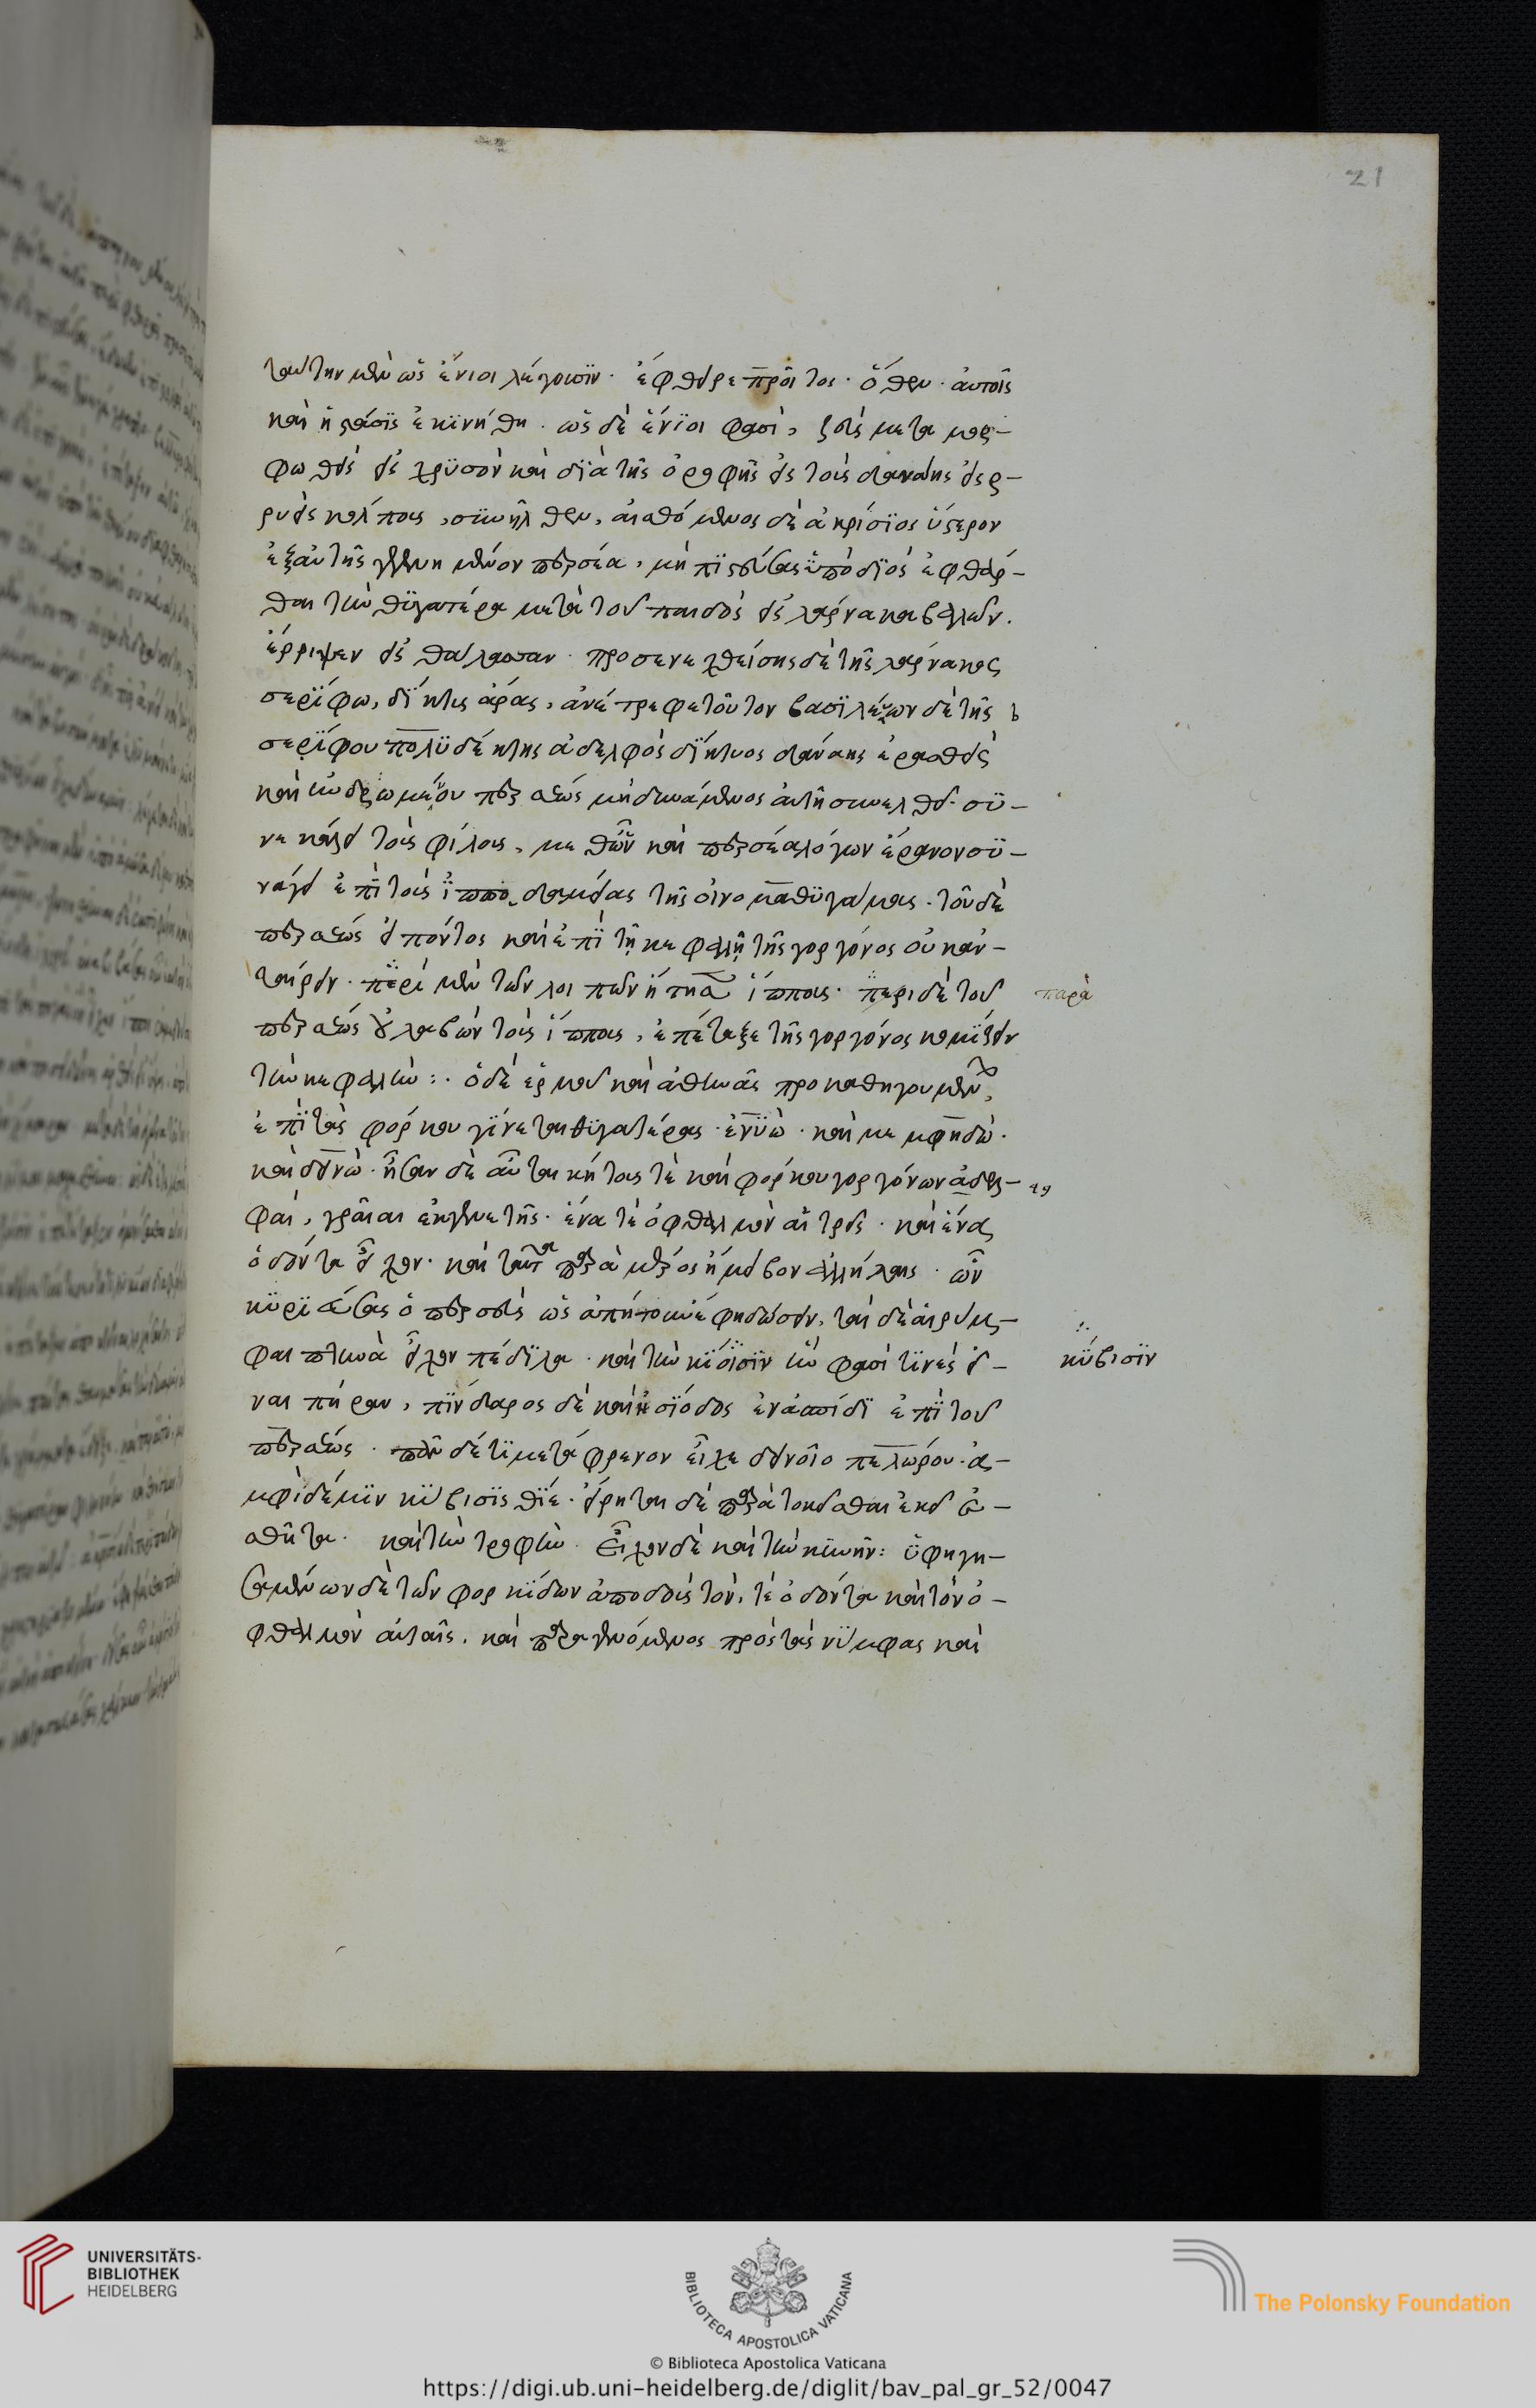 21
ταύτην μὲν ὡς ἔνιοι λέγουσϊν· ἔφθειρε προῖτος· ὅθεν· αὐτοῖς
καὶ ἡ στάσϊς ἐκϊνήθη· ὡς δὲ ἔνϊοι φασὶ, ζεὺς μεταμορ-
φωθεὶς εἰς χρϋσὸν καὶ δϊὰ τῆς ὀροφῆς εἰς τοὺς δανάης εἰσρ-
ρυεὶς κόλπους, συνῆλθεν, αἰσθόμενος δὲ ἀκρίσϊος ὕστερον
ἐξ αὐτῆς γεγενημένον περσέα, μὴ πϊστεύσας ὑπὸ δϊὸς ἐφθάρ-
θαι τὴν θϋγατέρα μετὰ τοῦ παιδὸς εἰς λάρνακα βαλὼν.
ἔρριψεν εἰς θάλασσαν· προσενεχθείσης δὲ τῆς λάρνακος
σερίφω, δΐκτυς ἄρας, ἀνέτρεφε τοῦτον βασϊλεύων δὲ τῆς
σερΐφου πολϋδέκτης ἀδελφὸς δΐκτυος δανάης ἐρασθεὶς
καὶ ἠνδρωμένου περσέως μὴ δυνάμενος αὐτῇ συνελθεῖν· σϋ-
νεκάλει τοὺς φίλους, μεθ' ὧν καὶ περσέα λέγων ἔρανον σϋ-
νάγειν ἐπὶ τοὺς ἱπποδαμείας τῆς οἰνομάου θϋγάμους. τοῦ δὲ
περσέως εἰπόντος καὶ ἐπὶ τῇ κεφαλῇ τῆς γοργόνος οὐκ ἀν-
ταίρειν· περὶ μὲν τῶν λοιπῶν ᾔτησα ἵππους· περι δὲ τοῦ
παρὰ
περσέως οὐ λαβὼν τοὺς ἵππους, ἐπέταξε τῆς γοργόνος κομϊζειν
τὴν κεφαλὴν:· ὁ δὲ ἑρμοῦ καὶ ἀθηνᾶς προκαθηγουμένων,
ἐπὶ τὰς φόρκου γΐνεται θϋγατέρας· ἐνϋὼ· καὶ μεμφηδὼ·
καὶ δεινὼ· ἦσαν δὲ αὗται κήτους τὲ καὶ φόρκου γοργόνων ἀδελ-
φαὶ, γραῖαι ἐκ γενετῆς· ἕνα τὲ ὀφθαλμὸν αἱ τρεῖς· καὶ ἕνα
ὀδόντα εἶχον· καὶ ταῦτα παρὰ μέρος ἤμειβον ἀλλήλαις· ὧν
κϋρϊεύσας ὁ περσεὺς ὡς ἀπῄτουν ἔφη δώσειν, ἂν δὲ
φαι πτηνὰ εἶχον πέδϊλα· καὶ τὴν κϊσϊσϊν ἣν φασὶ τϊνὲς εἶ-
κΰβισϊν
ναι πήραν, πΐνδαρος δὲ καὶ ἡσϊόδος ἐν ἀσπίδϊ ἐπὶ τοῦ
περσέως· πᾶν δέ τϊ μετάφρενον εἶχε δεινοῖο πελώρου· ἀ-
μφὶ δέ μϊν κΰβισϊς θϊέ· εἴρηται δὲ παρὰ τὸ κεῖσθαι ἐκεῖ ἐ-
σθῆτα· καὶ τὴν τροφὴν· εἶχον δὲ καὶ τὴν κϋνῆν: ὑφηγη-
σαμένων δὲ τῶν φορκίδων ἀποδοὺς τόν, τὲ ὀδόντα καὶ τὸν ὀ-
φθαλμὸν αὐταῖς. καὶ παραγενόμενος πρὸς τὰς νΰμφας καὶ
UNIVERSITÄTS-
BIBLIOTHEK
HEIDELBERG
BIBLIOTECA APOSTOLICA VATICANA
The Polonsky Foundation
© Biblioteca Apostolica Vaticana
https://digi.ub.uni-heidelberg.de/diglit/bav_pal_gr_52/0047